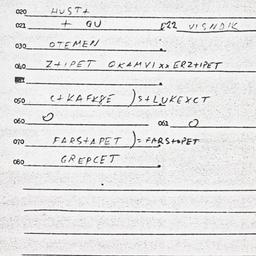 020 HUST+
021 + QU 022 VISNDIK
030 OTEMEN
040 Z+IPET OKAMVIXXERZ+IPET
050 C+KAFKYE )S+LUKEXCT
060 O 061 O
070 FARS+APET )=FARS+OPET
080 GREPCET